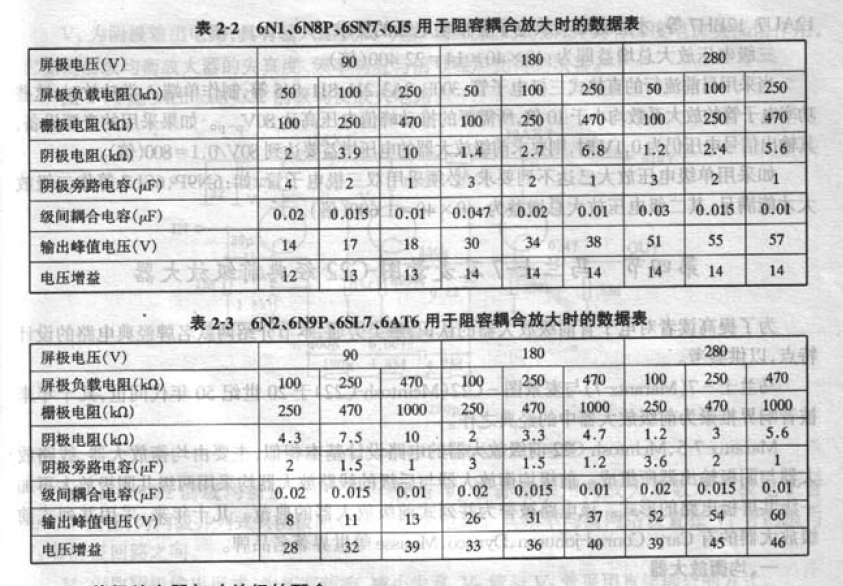 表 2-2 6N1、6N8P、6SN7、6J5 用于阻容耦合放大时的数据表
屏极电压(V) 90 180 280
屏极负载电阻(kΩ) 50 100 250 50 100 250 50 100 250
栅极电阻(kΩ) 100 250 470 100 250 470 100 250 470
阴极电阻(kΩ) 2 3.9 10 1.4 2.7 6.8 1.2 2.4 5.6
阴极旁路电容(μF) 4 2 1 3 2 1 3 2 1
级间耦合电容(μF) 0.02 0.015 0.01 0.047 0.02 0.01 0.03 0.015 0.01
输出峰值电压(V) 14 17 18 30 34 38 51 55 57
电压增益 12 13 13 14 14 14 14 14 14
表 2-3 6N2、6N9P、6SL7、6AT6 用于阻容耦合放大时的数据表
屏极电压(V) 90 180 280
屏极负载电阻(kΩ) 100 250 470 100 250 470 100 250 470
栅极电阻(kΩ) 250 470 1000 250 470 1000 250 470 1000
阴极电阻(kΩ) 4.3 7.5 10 2 3.3 4.7 1.2 3 5.6
阴极旁路电容(μF) 2 1.5 1 3 1.5 1.2 3.6 2 1
级间耦合电容(μF) 0.02 0.015 0.01 0.02 0.015 0.01 0.02 0.015 0.01
输出峰值电压(V) 8 11 13 26 31 37 52 54 60
电压增益 28 32 39 33 36 40 39 45 46